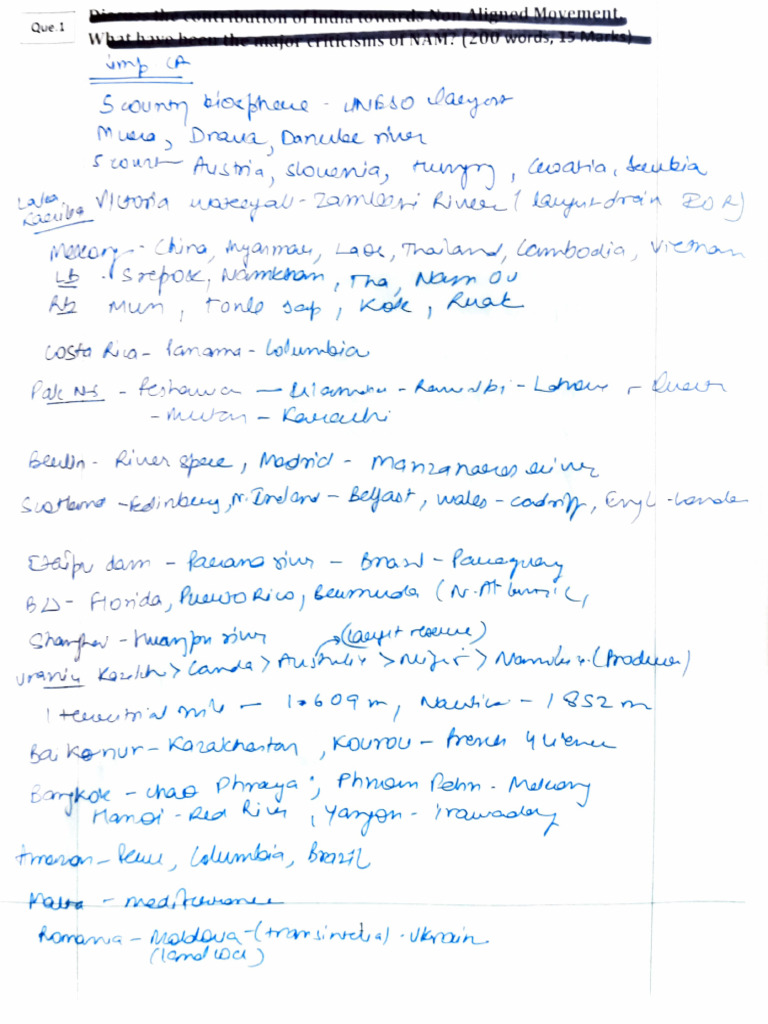 Que.1
Discuss the contribution of India towards Non Aligned Movement.
What have been the major criticisms of NAM? (200 words, 15 Marks)
imp CA
5 country biosphere - UNESO largest
Mura, Drava, Danube river
5 count - Austria, Slovenia, Hungry, Croatia, Serbia
Lake Kariba Victoria waterfall - Zambezi River (largest drain IOR)
Mekong - China, Myanmar, Laos, Thailand, Cambodia, Vietnam
Lb - Srepok, Namkhan, Tha, Nam Ou
Rb Mun, Tonle sap, Kok, Ruak
Costa Rica - Panama - Columbia
Pak NS - Peshawar - Islamabad - Rawalpi - Lahore -
- Multan - Karachi
Berlin - River spree, Madrid - Manzanares river
Scotland - Edinburg, N. Ireland - Belfast, wales - cadriff, Engl - London
Etaipu dam - Parana river - Brazil - Paraguay
BΔ - Florida, Puerto Rico, Bermuda (N. Atlantic,
Shanghai - Huangpu river (largest reserve)
Uranium Kazakh > Canda > Australia > Niger > Namibia (Producer)
1 terrestrial mile - 1.609 m, Nautica - 1852 m
Baikonur - Kazakhastan, Kourou - French Guiana
Bangkok - Chao Phraya, Phnom Pehn - Mekong
Hanoi - Red River, Yangon - Irawaddy
Amazon - Peru, Columbia, Brazil
Malta - mediterranea
Romania - Moldova - (transinstria) - Ukrain
(land lock)